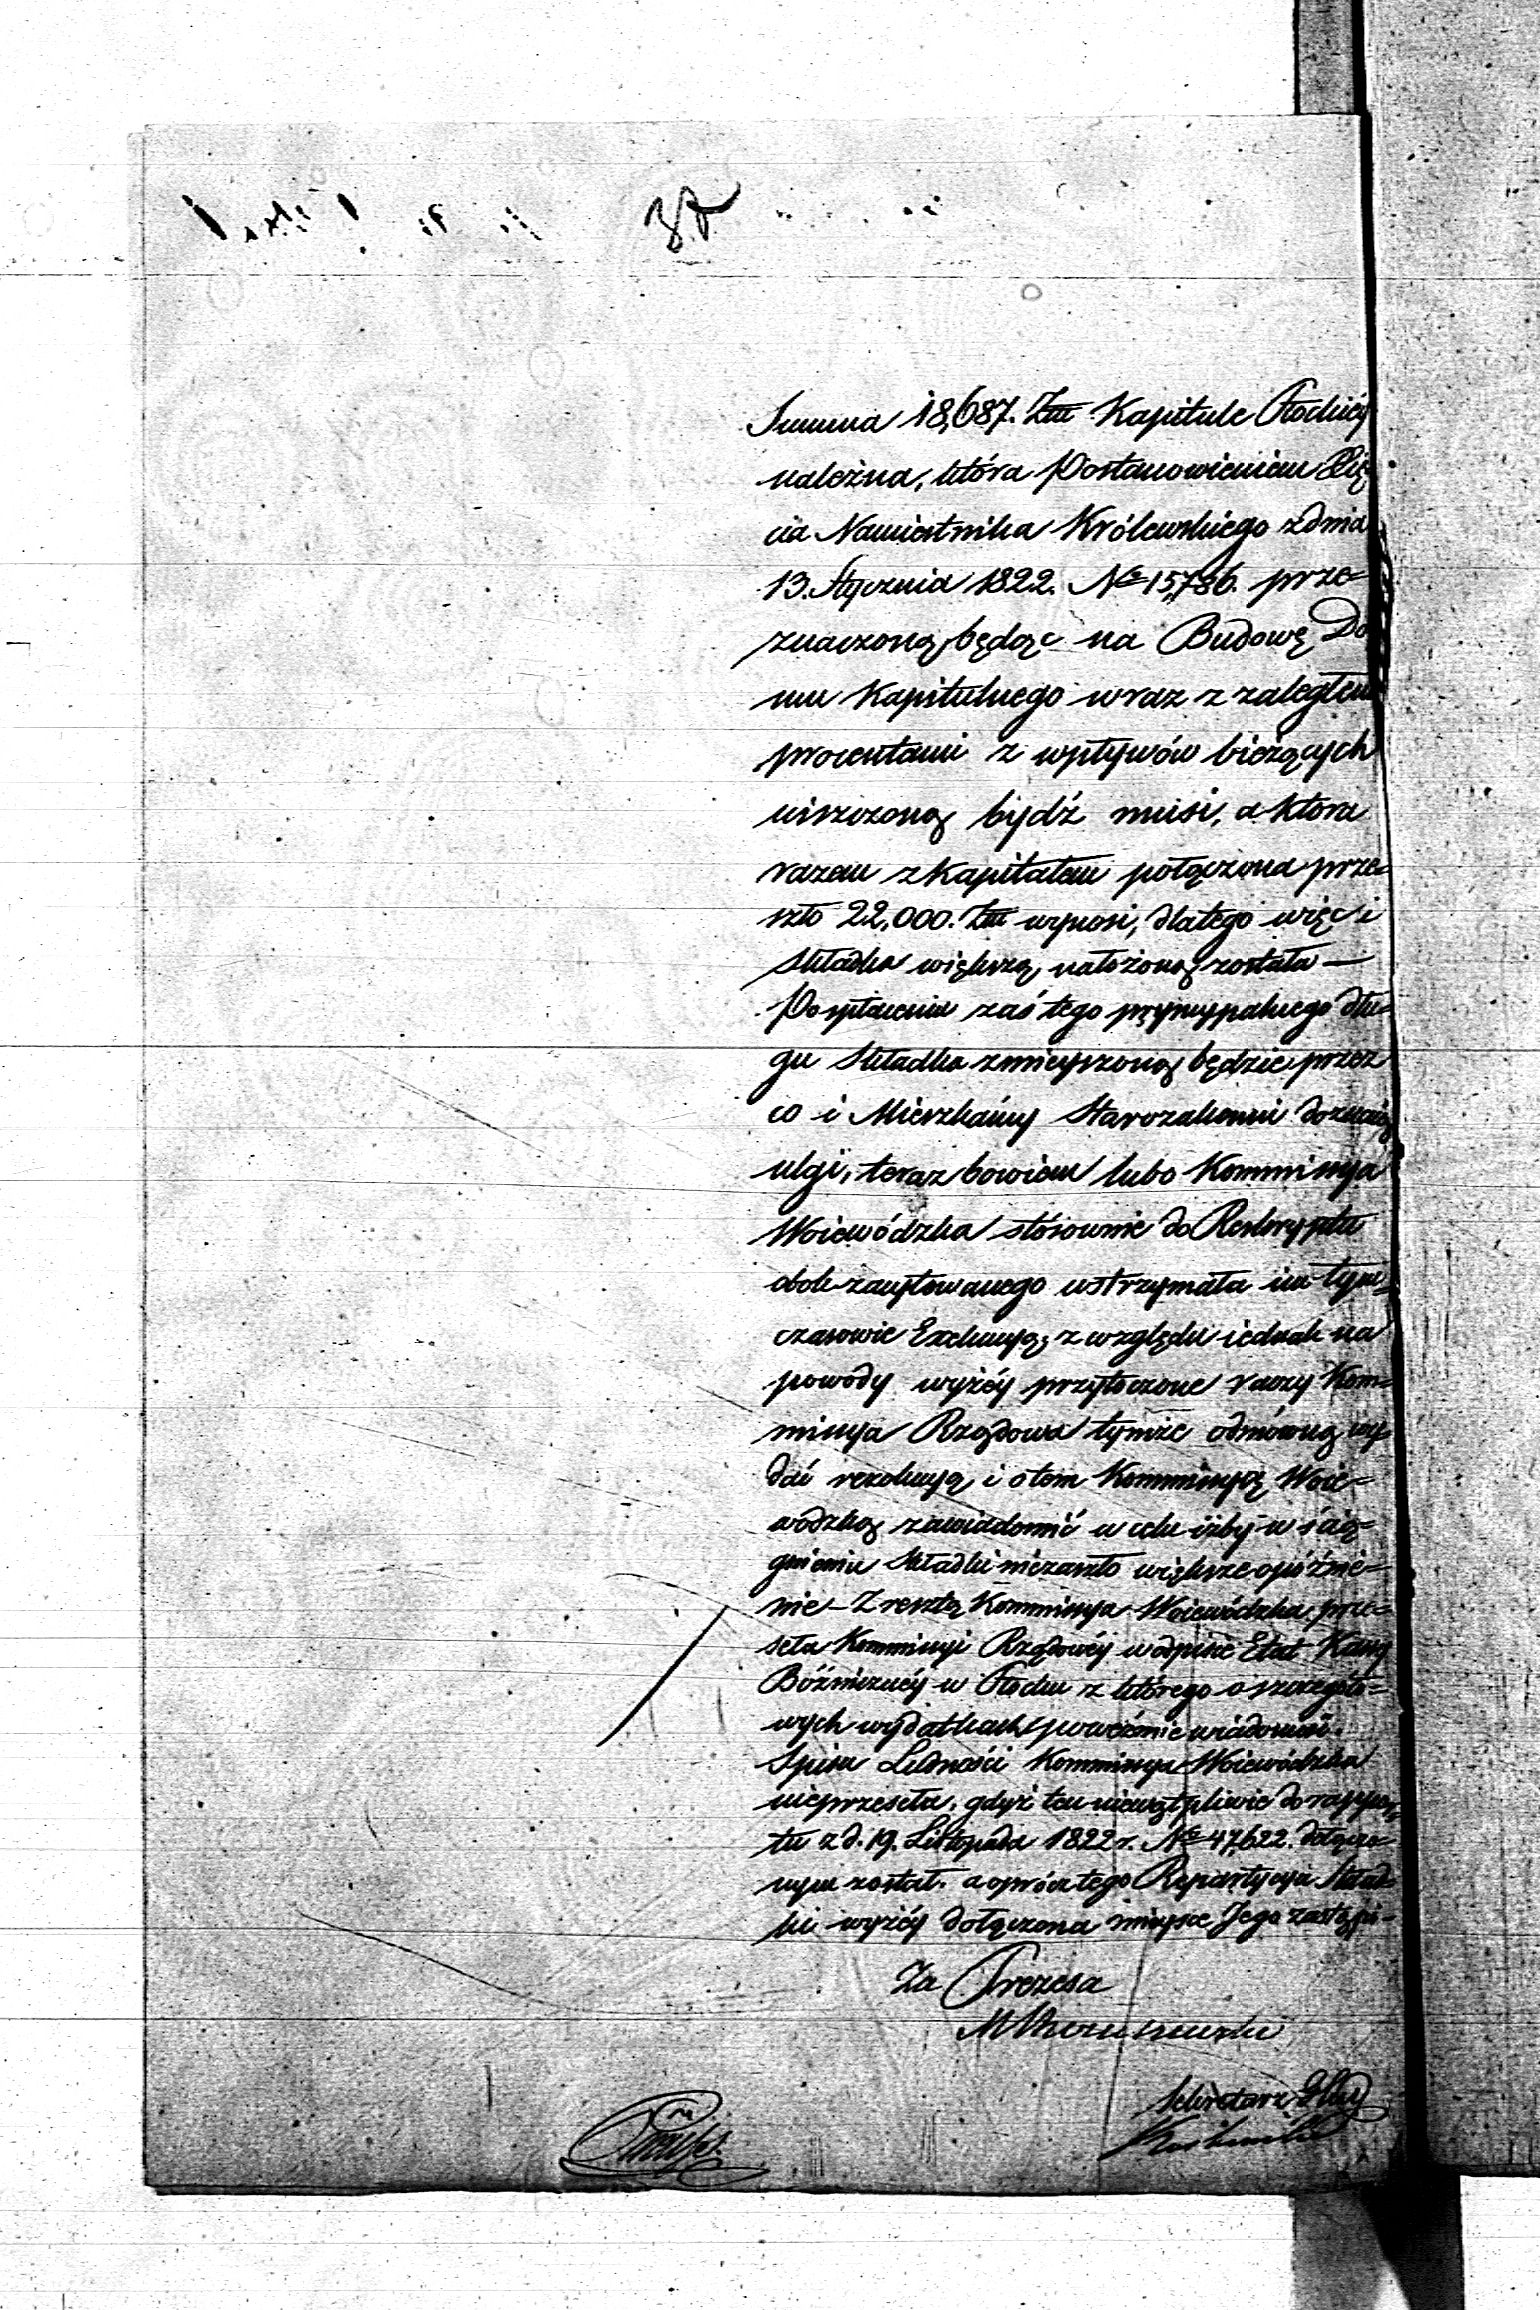 37
Summa 18,687. Złł Kapitule Płockiéy
należna, która Postanowieniem Xię
cia Namiestnika Królewskiego z dnia
13. Stycznia 1822. No 15,786. prze=
znaczoną będąc na Budowę Do
mu Kapitulnego wraz z zaległemi
procentami z wpływów bieżących
uiszczoną bydź musi, a która
razem z kapitałem połączona prze=
szło 22,000. Złł wynosi, dlatego więc i
Składka większą nałożoną została —
Po spłaceniu zaś tego pryncypalnego dłu=
gu Składka zmieyszoną będzie przez
co i Mieszkańcy Starozakonni doznaią
ulgi, teraz bowiem lubo Kommissya
Woiewódzka stósownie do Reskryptu
obok zacytowanego wstrzymała im tym=
czasowie Exekucyą, z względu iednak na
powody wyżéy przytoczone raczy Kom=
missya Rządowa tymże odmówną wy
dać rezolucyą i o tem Kommissyą Woie=
wódzką zawiadomić w celu iżby w ścią=
gnieniu Składki niezaszło większe opóźnie=
nie – Z resztą Kommissya Woiewódzka prze=
seła Kommissyi Rządowéy w odpisie Etat Kassy
Bóżniczney w Płocku z którego o szczegóło=
wych wydatkach poweźmie wiadomość.
Spisu Ludności Kommissya Woiewódzka
nieprzeseła, gdyż ten niewątpliwie do rappor=
tu z d. 19. Listopada 1822 r. No 47,622. dołączo=
nym został. a oprócz tego Repartycya Skład=
ki wyżéy dołączona mieysce Jego zastąpi –
Za Prezesa
Sekretarz